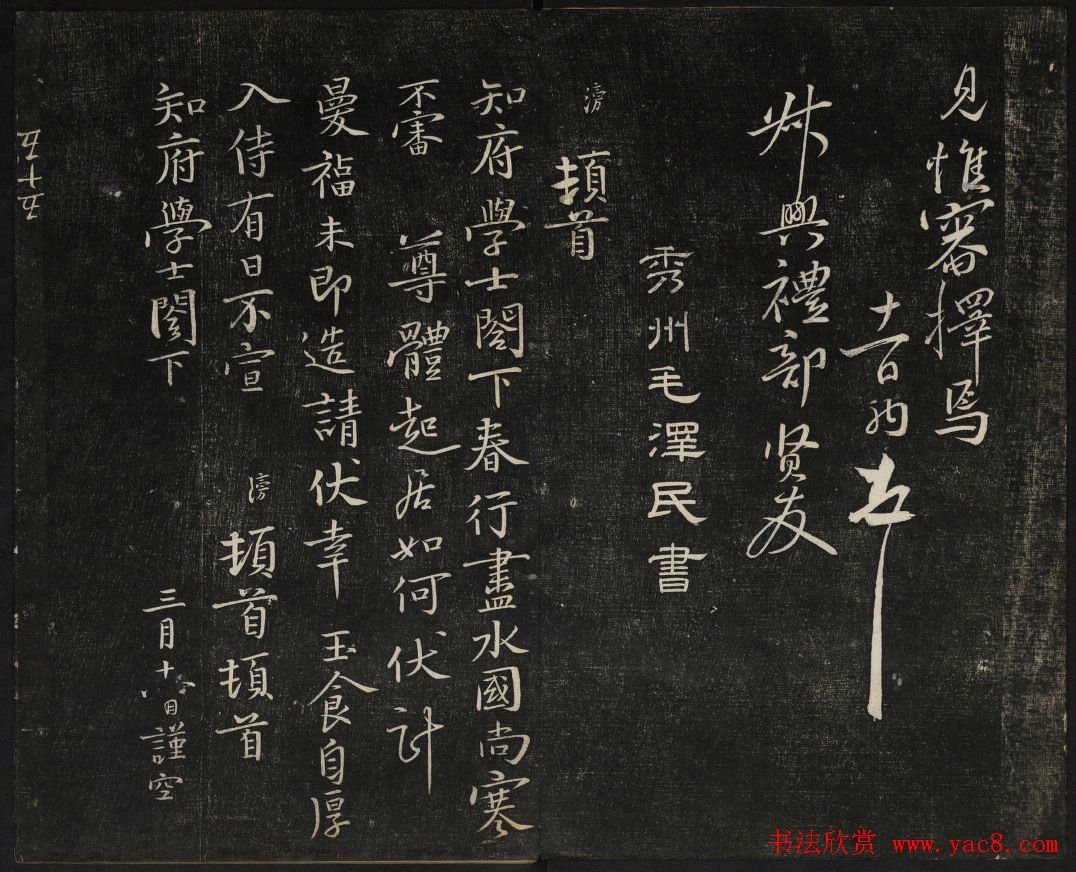 見惟審擇焉
十一日
叔興禮部賢友
秀州毛澤民書
滂 頓首
知府學士閤下春行盡水國尚寒
不審 尊體起居如何伏計
曼福未即造請伏幸 玉食自厚
入侍有日不宣 滂 頓首頓首
知府學士閤下 三月十八日謹空
五十五
书法欣赏 www.yac8.com